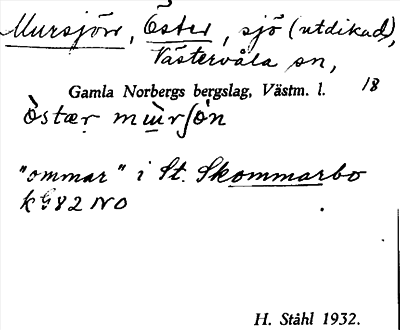 Mursjön, Öster, sjö (utdikad),
Västervåla sn,
Gamla Norbergs bergslag, Västm. l. 18
òstær mùrʃòn
"ommar" i St. Skommarbo
k G 82 NO
H. Ståhl 1932.